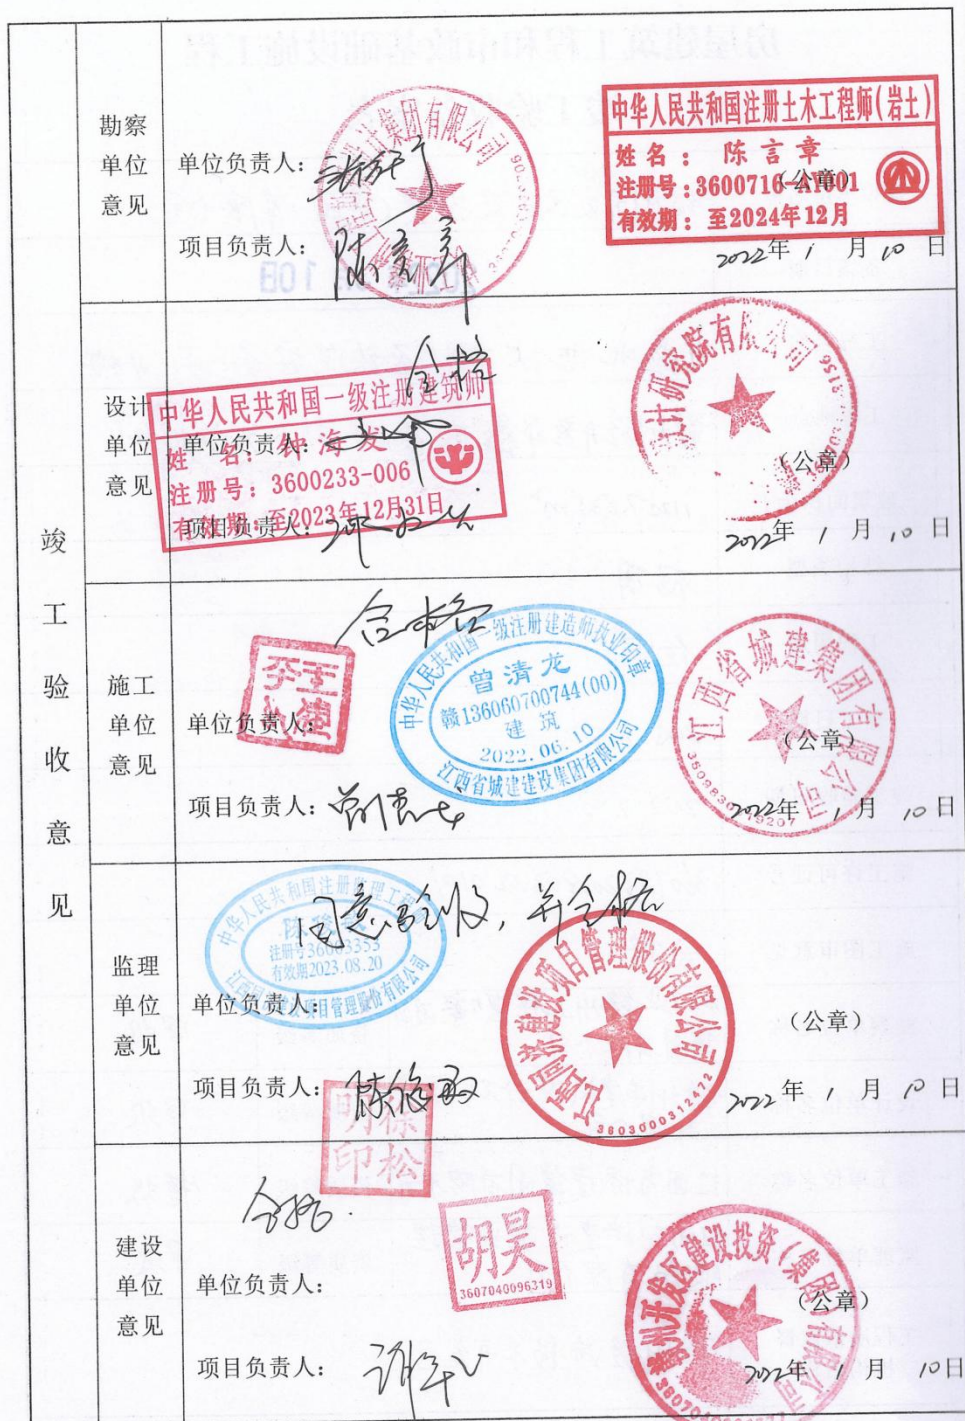 竣工验收意见
勘察单位意见
单位负责人：
项目负责人：陈言章
计集团有限公司
中华人民共和国注册土木工程师(岩土)
姓名：陈言章
注册号：3600716-AY001
有效期：至2024年12月
(公章)
2022年1月10日
设计单位意见
合格
中华人民共和国一级注册建筑师
姓名：钟海发
注册号：3600233-006
有效期：至2023年12月31日
单位负责人：
项目负责人：
设计研究院有限公司
(公章)
2022年1月10日
施工单位意见
合格
单位负责人：
中华人民共和国一级注册建造师执业印章
曾清龙
赣136060700744(00)
建筑
2022.06.10
江西省城建建设集团有限公司
项目负责人：曾清龙
江西省城建集团有限公司
(公章)
2022年1月10日
监理单位意见
同意验收，并合格
中华人民共和国注册监理工程师
注册号36003353
有效期2023.08.20
单位负责人：
项目负责人：陈俊敏
建设项目管理股份有限公司
3603000312472
(公章)
2022年1月10日
建设单位意见
徐松明印
合格.
单位负责人：
胡昊
3607040096319
项目负责人：
赣州开发区建设投资(集团)有限公司
(公章)
2022年1月10日